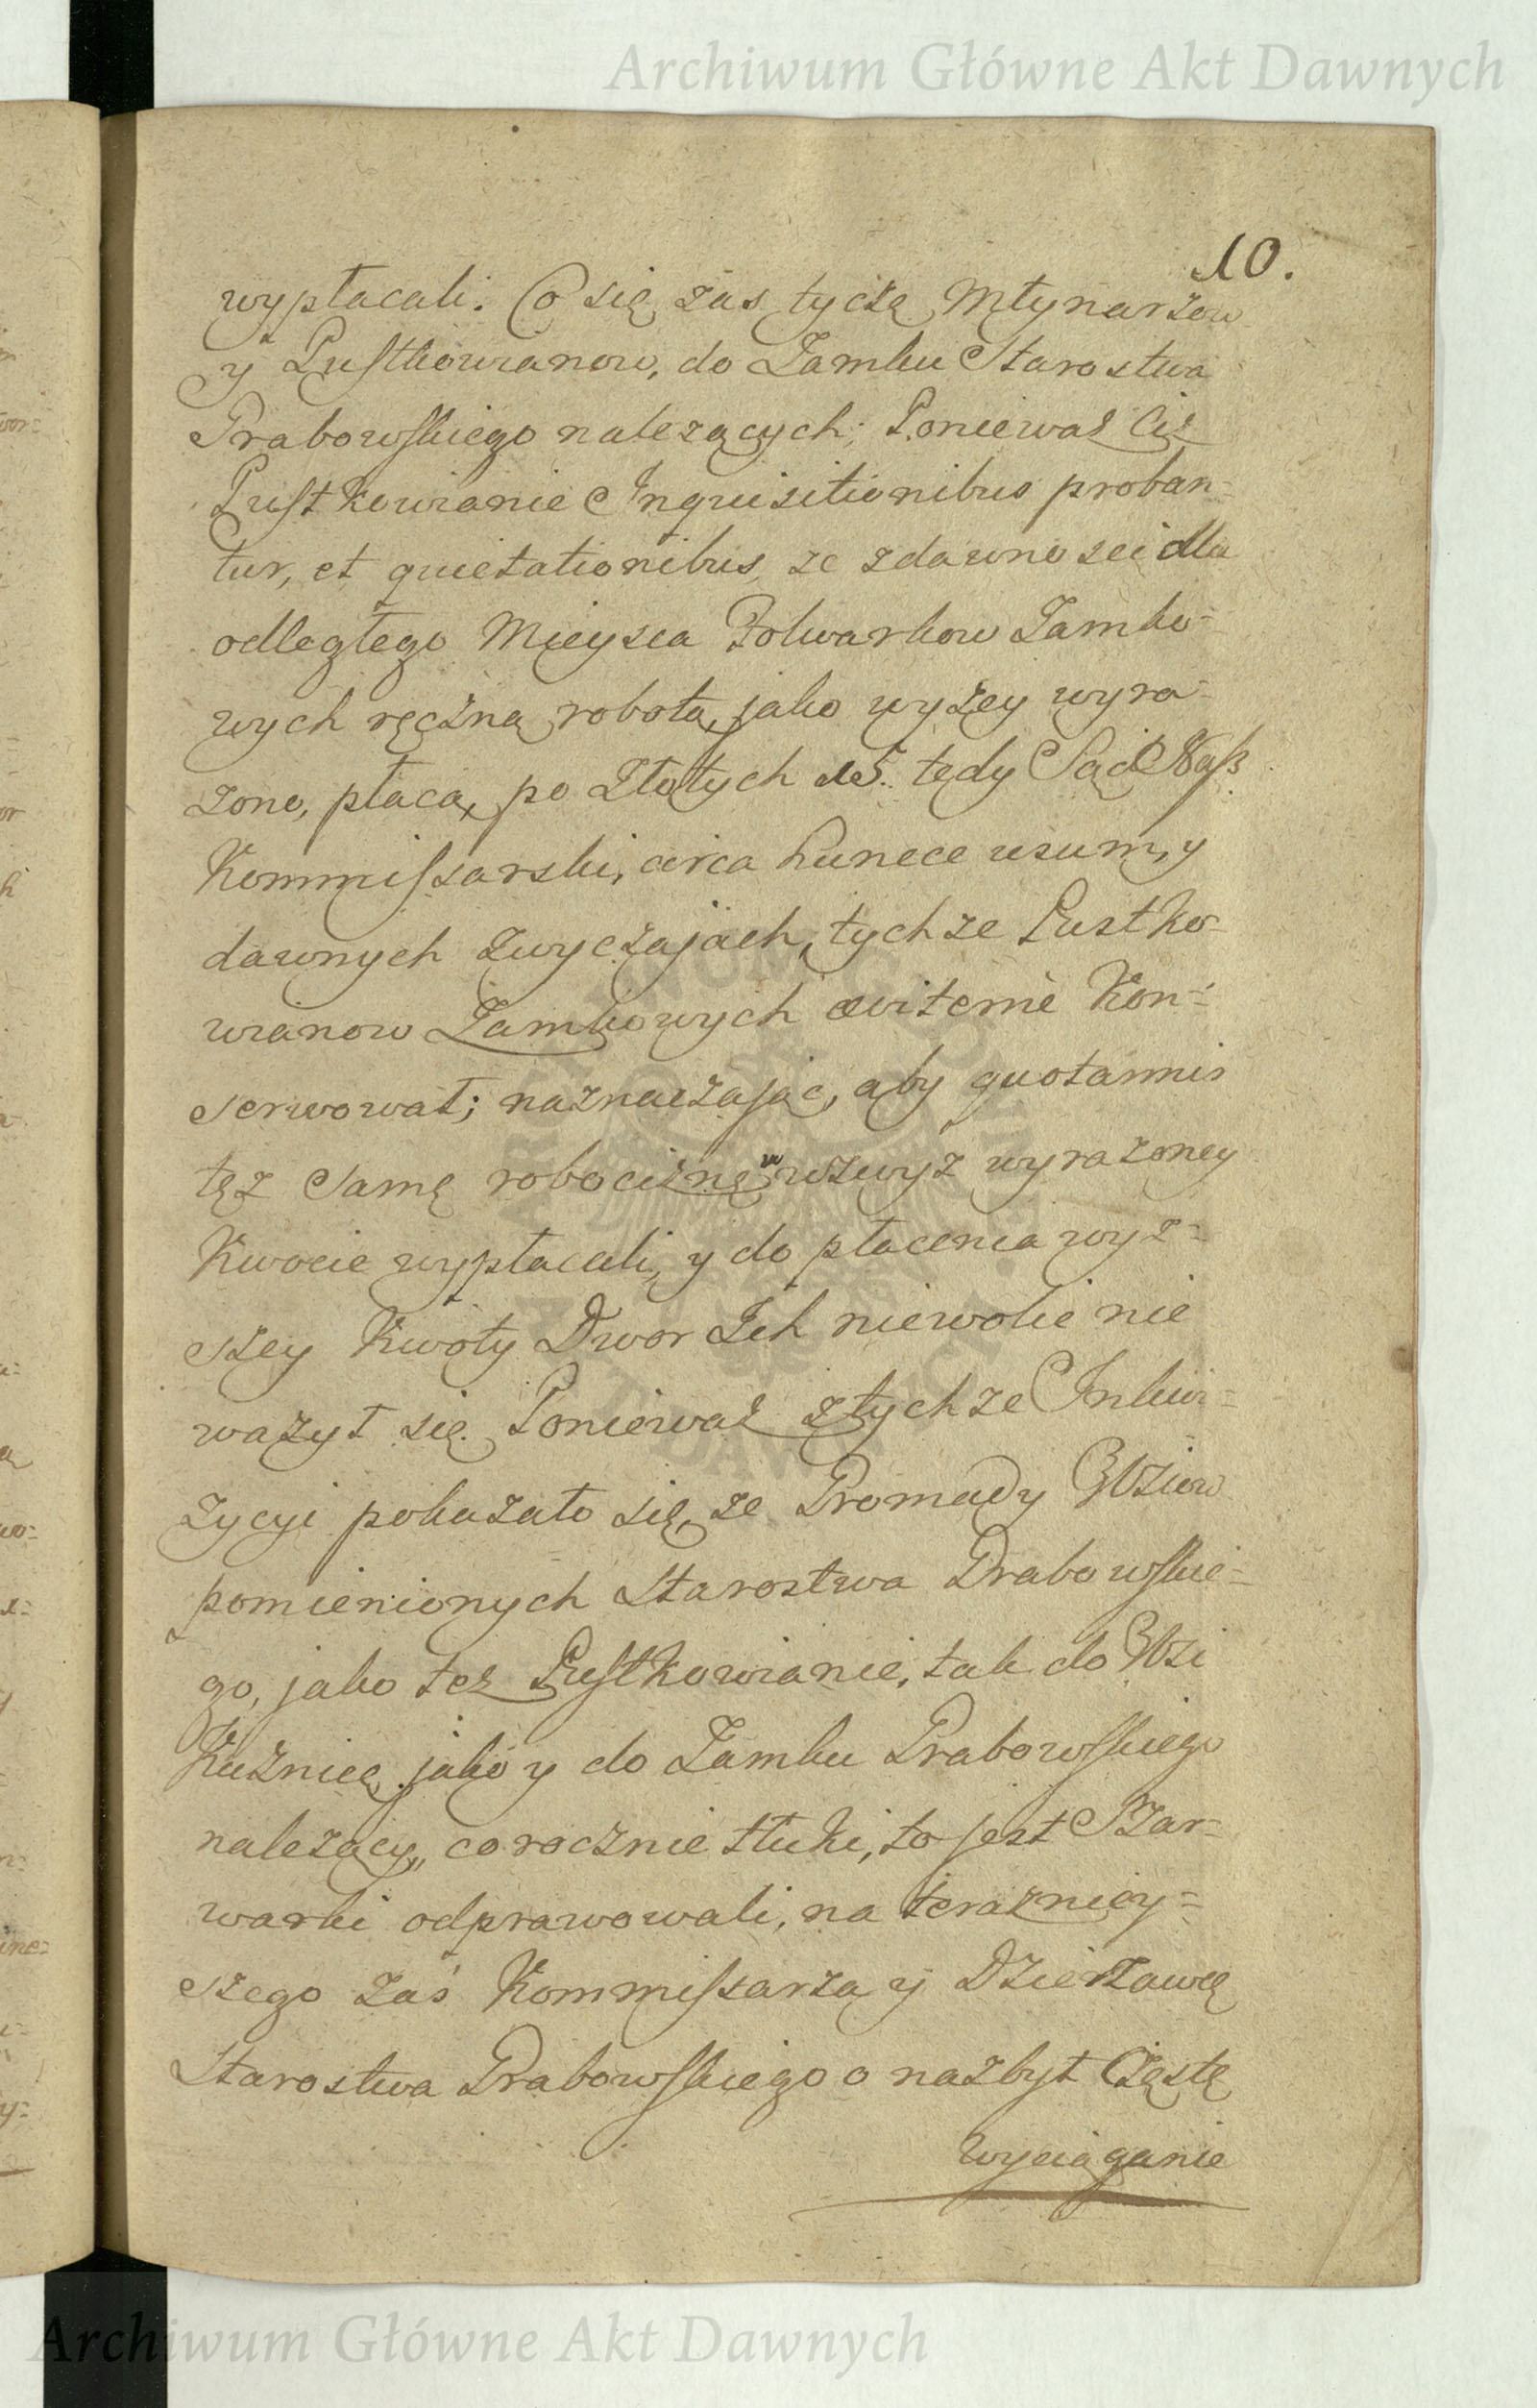 Archiwum Główne Akt Dawnych
10.
wypłacali. Co się zas tycze Młynarzow
y Pustkowianow, do Zamku Starostwa
Grabowskiego nalezących; Poniewaz Ciz
Pustkowianie Inquisitionibus proban=
tur, et quietationibus, ze zdawnosci dla
odległego Mieysca Folwarkow Zamko=
wych ręczną robotą, jako wyżey wyra=
zono, płacą po Złotych 15. tedy Sąd Nasz
Kommissarski, circa hunc usum, y
dawnych zwyczajach, tychze Pustko=
wianow Zamkowych aviterne Kon=
serwował; naznaczając, aby quotannis
też samę robociznę w wzwyż wyrazoney
Kwocie wypłacali, y do płacenia wyż=
szey Kwoty Dwor Ich niewolic nie
ważył się. Poniewaz z tychze Inkwi=
zycyi pokazało się, ze Gromady Wsiow
pomienionych Starostwa Grabowskie=
go, jako tez Pustkowianie, tak do Wsi
Kuźnicą, jako y do Zamku Grabowskiego
nalezący, corocznie tłuki, to jest Szar=
warki odprawowali, na teraźniey=
szego zaś Kommissarza y Dzierzawcę
Starostwa Grabowskiego o nazbyt Częste
wyciąganie
Archiwum Główne Akt Dawnych